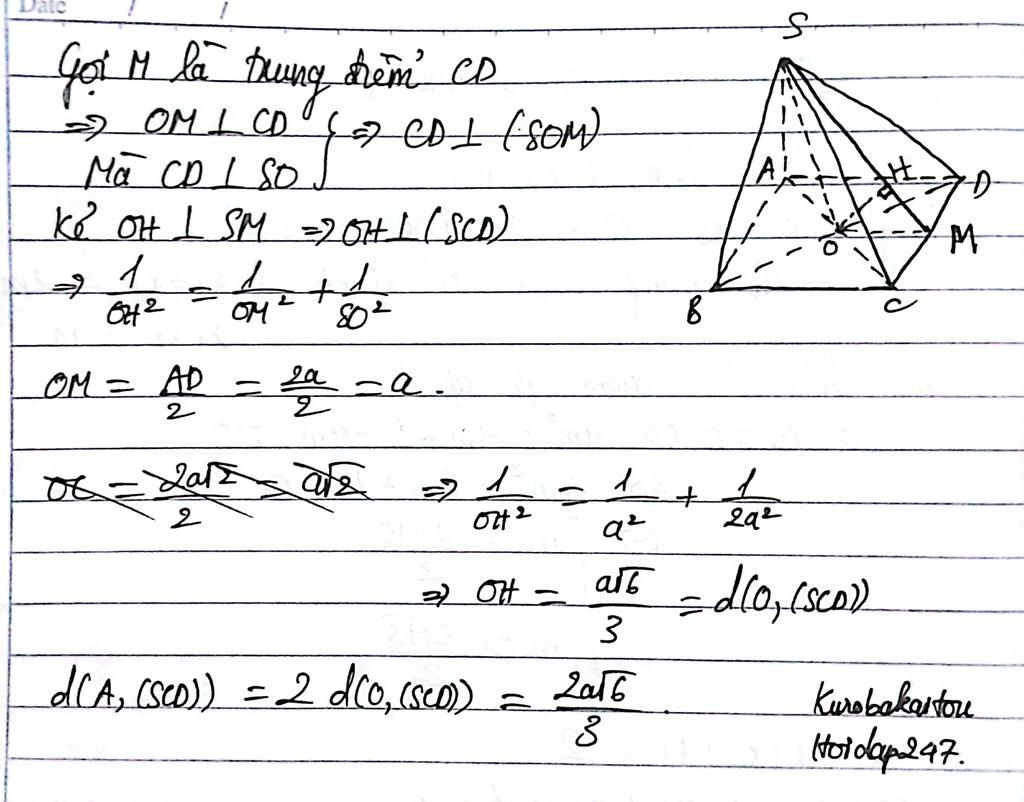 Date / /
Gọi M là trung điểm CD
=> OM ⊥ CD } => CD ⊥ (SOM)
Mà CD ⊥ SO
Kẻ OH ⊥ SM => OH ⊥ (SCD)
=> 1/OH² = 1/OM² + 1/SO²
OM = AD/2 = 2a/2 = a.
OC = 2a√2/2 = a√2 => 1/OH² = 1/a² + 1/2a²
=> OH = a√6/3 = d(O,(SCD))
d(A,(SCD)) = 2 d(O,(SCD)) = 2a√6/3.
Kurobakaitou
Hoidap247.
S
A
H
D
O
M
B
C